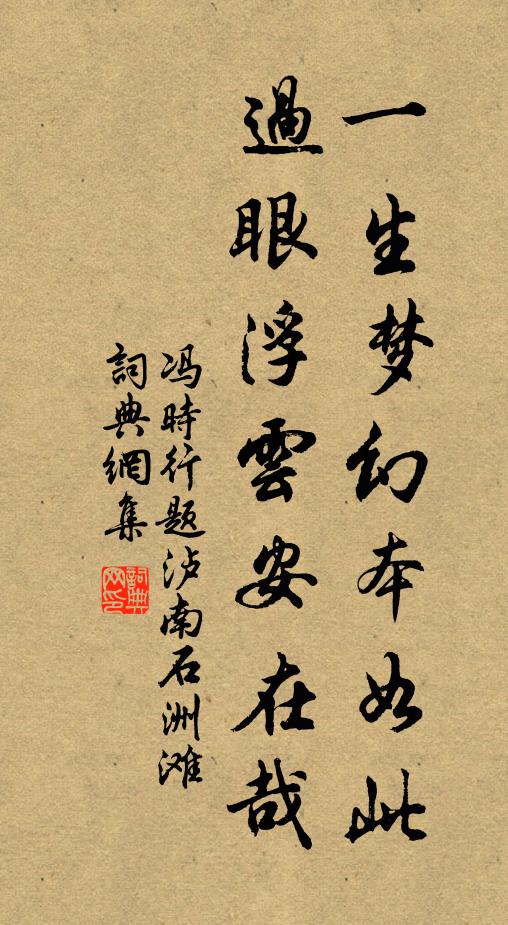 一生梦幻本如此
過眼浮雲安在哉
冯時行题泸南石洲滩
詞典網集
詞典网印